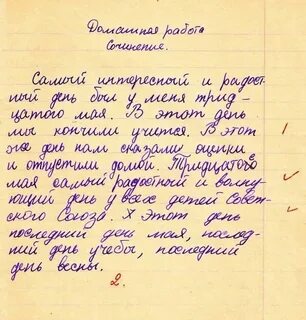 Домашная работа
Сочинение.
Самый интересный и радост
ный день был у меня трид-
цатого мая. В этот день
мы кончили учится. В этот
же день нам сказали оценки
и отпустили домой. Тридцатого
мая самый радостный и волну
ющий день у всех детей Совет-
ского Союза. Х Этот день
последний день мая, послед-
ний день учебы, последний
день весны.
2.